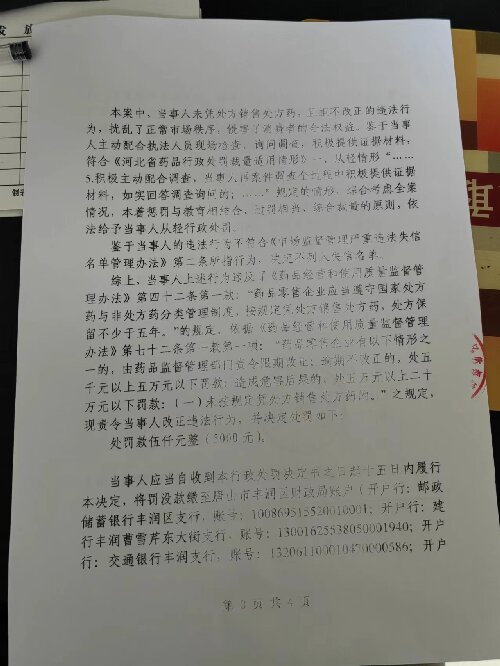 本案中，当事人未凭处方销售处方药，且拒不改正的违法行
为，扰乱了正常市场秩序，侵害了消费者的合法权益。鉴于当事
人主动配合执法人员现场检查、询问调查，积极提供证据材料，
符合《河北省药品行政处罚裁量适用情形》一、从轻情形“……
5.积极主动配合调查，当事人再案件调查全过程中积极提供证据
材料，如实回答调查询问的；……”规定的情形，综合考虑全案
情况，本着惩罚与教育相结合、过罚相当、综合裁量的原则，依
法给予当事人从轻行政处罚。
鉴于当事人的违法行为不符合《市场监督管理严重违法失信
名单管理办法》第二条所指行为，决定不列入失信名单。
综上，当事人上述行为违反了《药品经营和使用质量监督管
理办法》第四十二条第一款：“药品零售企业应当遵守国家处方
药与非处方药分类管理制度，按规定凭处方销售处方药，处方保
留不少于五年。”的规定，依据《药品经营和使用质量监督管理
办法》第七十二条第一款第一项：“药品零售企业有以下情形之
一的，由药品监督管理部门责令限期改正；逾期不改正的，处五
千元以上五万元以下罚款；造成危害后果的，处五万元以上二十
万元以下罚款：（一）未按规定凭处方销售处方药的。”之规定，
现责令当事人改正违法行为，并决定处罚如下：
处罚款伍仟元整（5000元）。
当事人应当自收到本行政处罚决定书之日起十五日内履行
本决定，将罚没款缴至唐山市丰润区财政局账户（开户行：邮政
储蓄银行丰润区支行，账号：100869515520010001；开户行：建
行丰润曹雪芹东大街支行，账号：13001625538050001940；开户
行：交通银行丰润支行，账号：132061100010470000586；开户
第 3 页 共 4 页
基